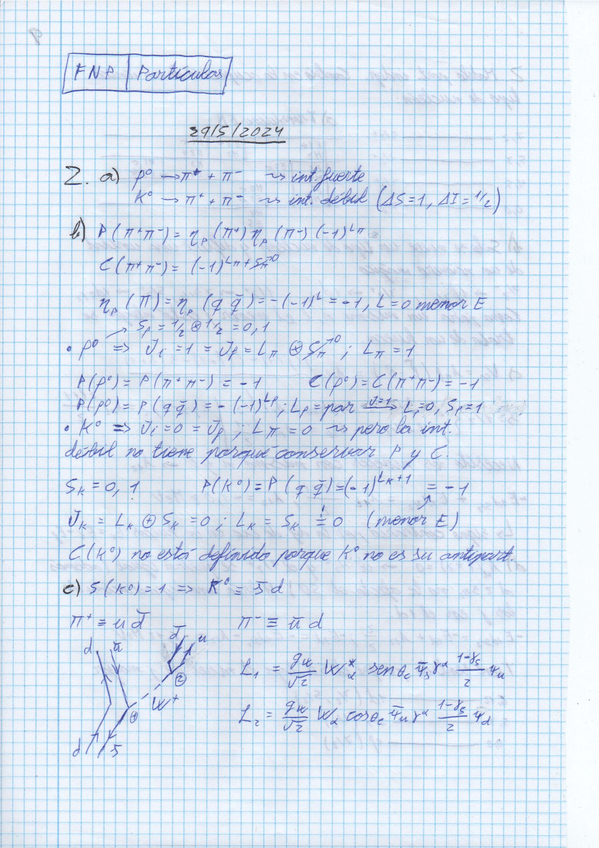 FNP | Partículas
29/5/2024
2. a) ρ⁰ → π⁺ + π⁻ ⇝ int. fuerte
K⁰ → π⁺ + π⁻ ⇝ int. débil (ΔS=1, ΔI=1/2)
b) P(π⁺π⁻) = η_P(π⁺) η_P(π⁻) (-1)^{Lπ}
C(π⁺π⁻) = (-1)^{Lπ+Sπ→0}
η_P(π) = η_P(q q̄) = -(-1)^L = -1, L=0 menor E
S_ρ = 1/2 ⊗ 1/2 = 0,1
• ρ⁰ ⇒ J_i = 1 = J_f = Lπ ⊗ Sπ→0 ; Lπ = 1
P(ρ⁰) = P(π⁺π⁻) = -1 C(ρ⁰) = C(π⁺π⁻) = -1
P(ρ⁰) = P(q q̄) = -(-1)^{Lρ} ; Lρ = par —J=1→ Lρ=0, Sρ=1
• K⁰ ⇒ J_i = 0 = J_f ; Lπ = 0 ⇝ pero la int.
débil no tiene porque conservar P y C.
S_K = 0,1 P(K⁰) = P(q q̄) = (-1)^{L_K+1} = -1
J_K = L_K ⊕ S_K = 0 ; L_K = S_K != 0 (menor E)
C(K⁰) no está definido porque K⁰ no es su antipart.
c) S(K⁰) = 1 ⇒ K⁰ ≡ s̄ d
π⁺ ≡ u d̄ π⁻ ≡ ū d
d ū d̄ u
W⁺
d s̄
L₁ = g_w/√2 W_α^* senθ_c ψ̄_s γ^α (1-γ₅)/2 ψ_u
L₂ = g_w/√2 W_α cosθ_c ψ̄_u γ^α (1-γ₅)/2 ψ_d